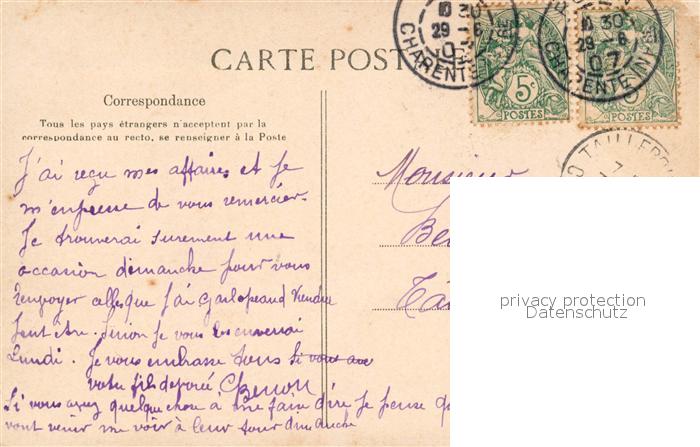 CARTE POST
Correspondance
Tous les pays étrangers n'acceptent par la
correspondance au recto, se renseigner à la Poste
30
29 -6
07
CHARENTE INF
30
29 -6
07
CHARENTE INF
5c
POSTES
POSTES
TAILLEB
J'ai reçu mes affaires et je
m'empresse de vous remercier.
Je trouverai surement une
occasion dimanche pour vous
renvoyer celles que j'ai
peut être. Sinon je vous les enverrai
Lundi. Je vous embrasse tous si vous ave
votre fils
Si vous avez quelque chose à me faire dire je pense q
vont venir me voir à leur tour dimanche
Monsieur
Be
privacy protection
Datenschutz